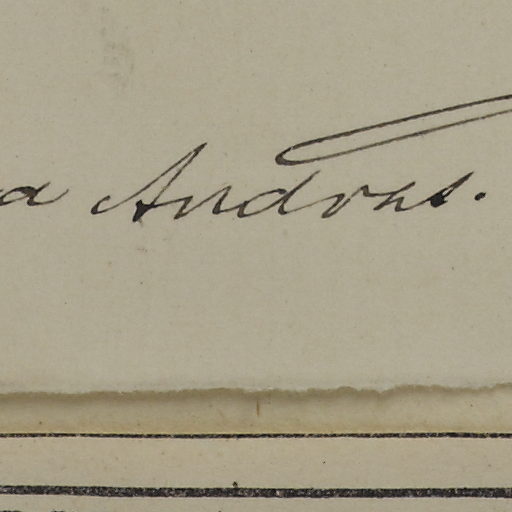 a Andrus.